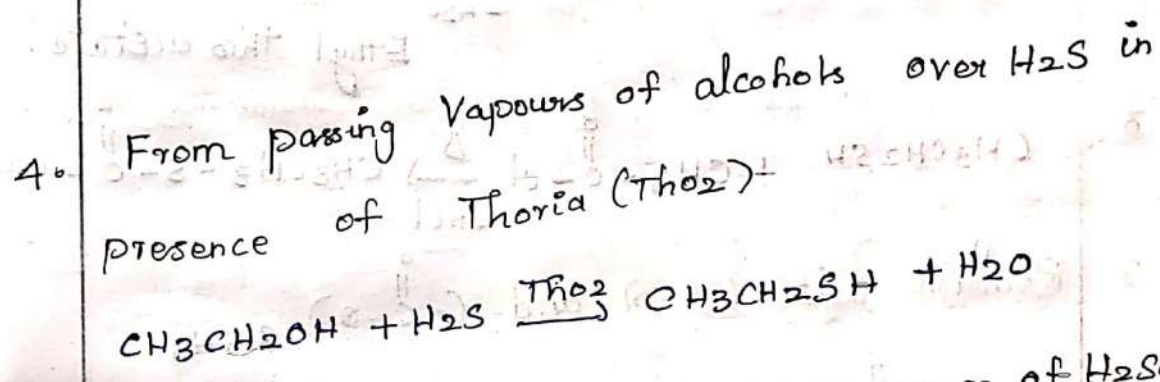 4. From passing Vapours of alcohols over H2S in
presence of Thoria (ThO2)-
CH3CH2OH + H2S ThO2→ CH3CH2SH + H2O
of H2S